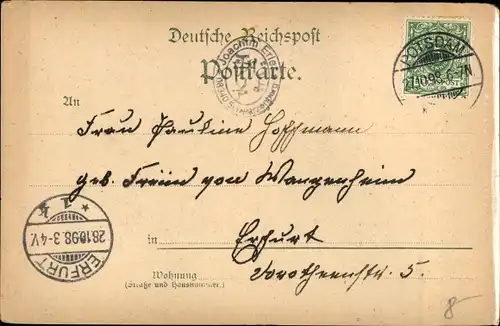 Deutsche Reichspost
Postkarte.
Joachim Erler
POTSDAM
10.98. 6-7N
An
Frau Pauline Hoffmann
geb. Freiin von Wangenheim
in
Erfurt
Dorotheenstr. 5.
Wohnung
(Straße und Hausnummer.)
ERFURT
28.10.98. 3-4V.
* 1 *
8-